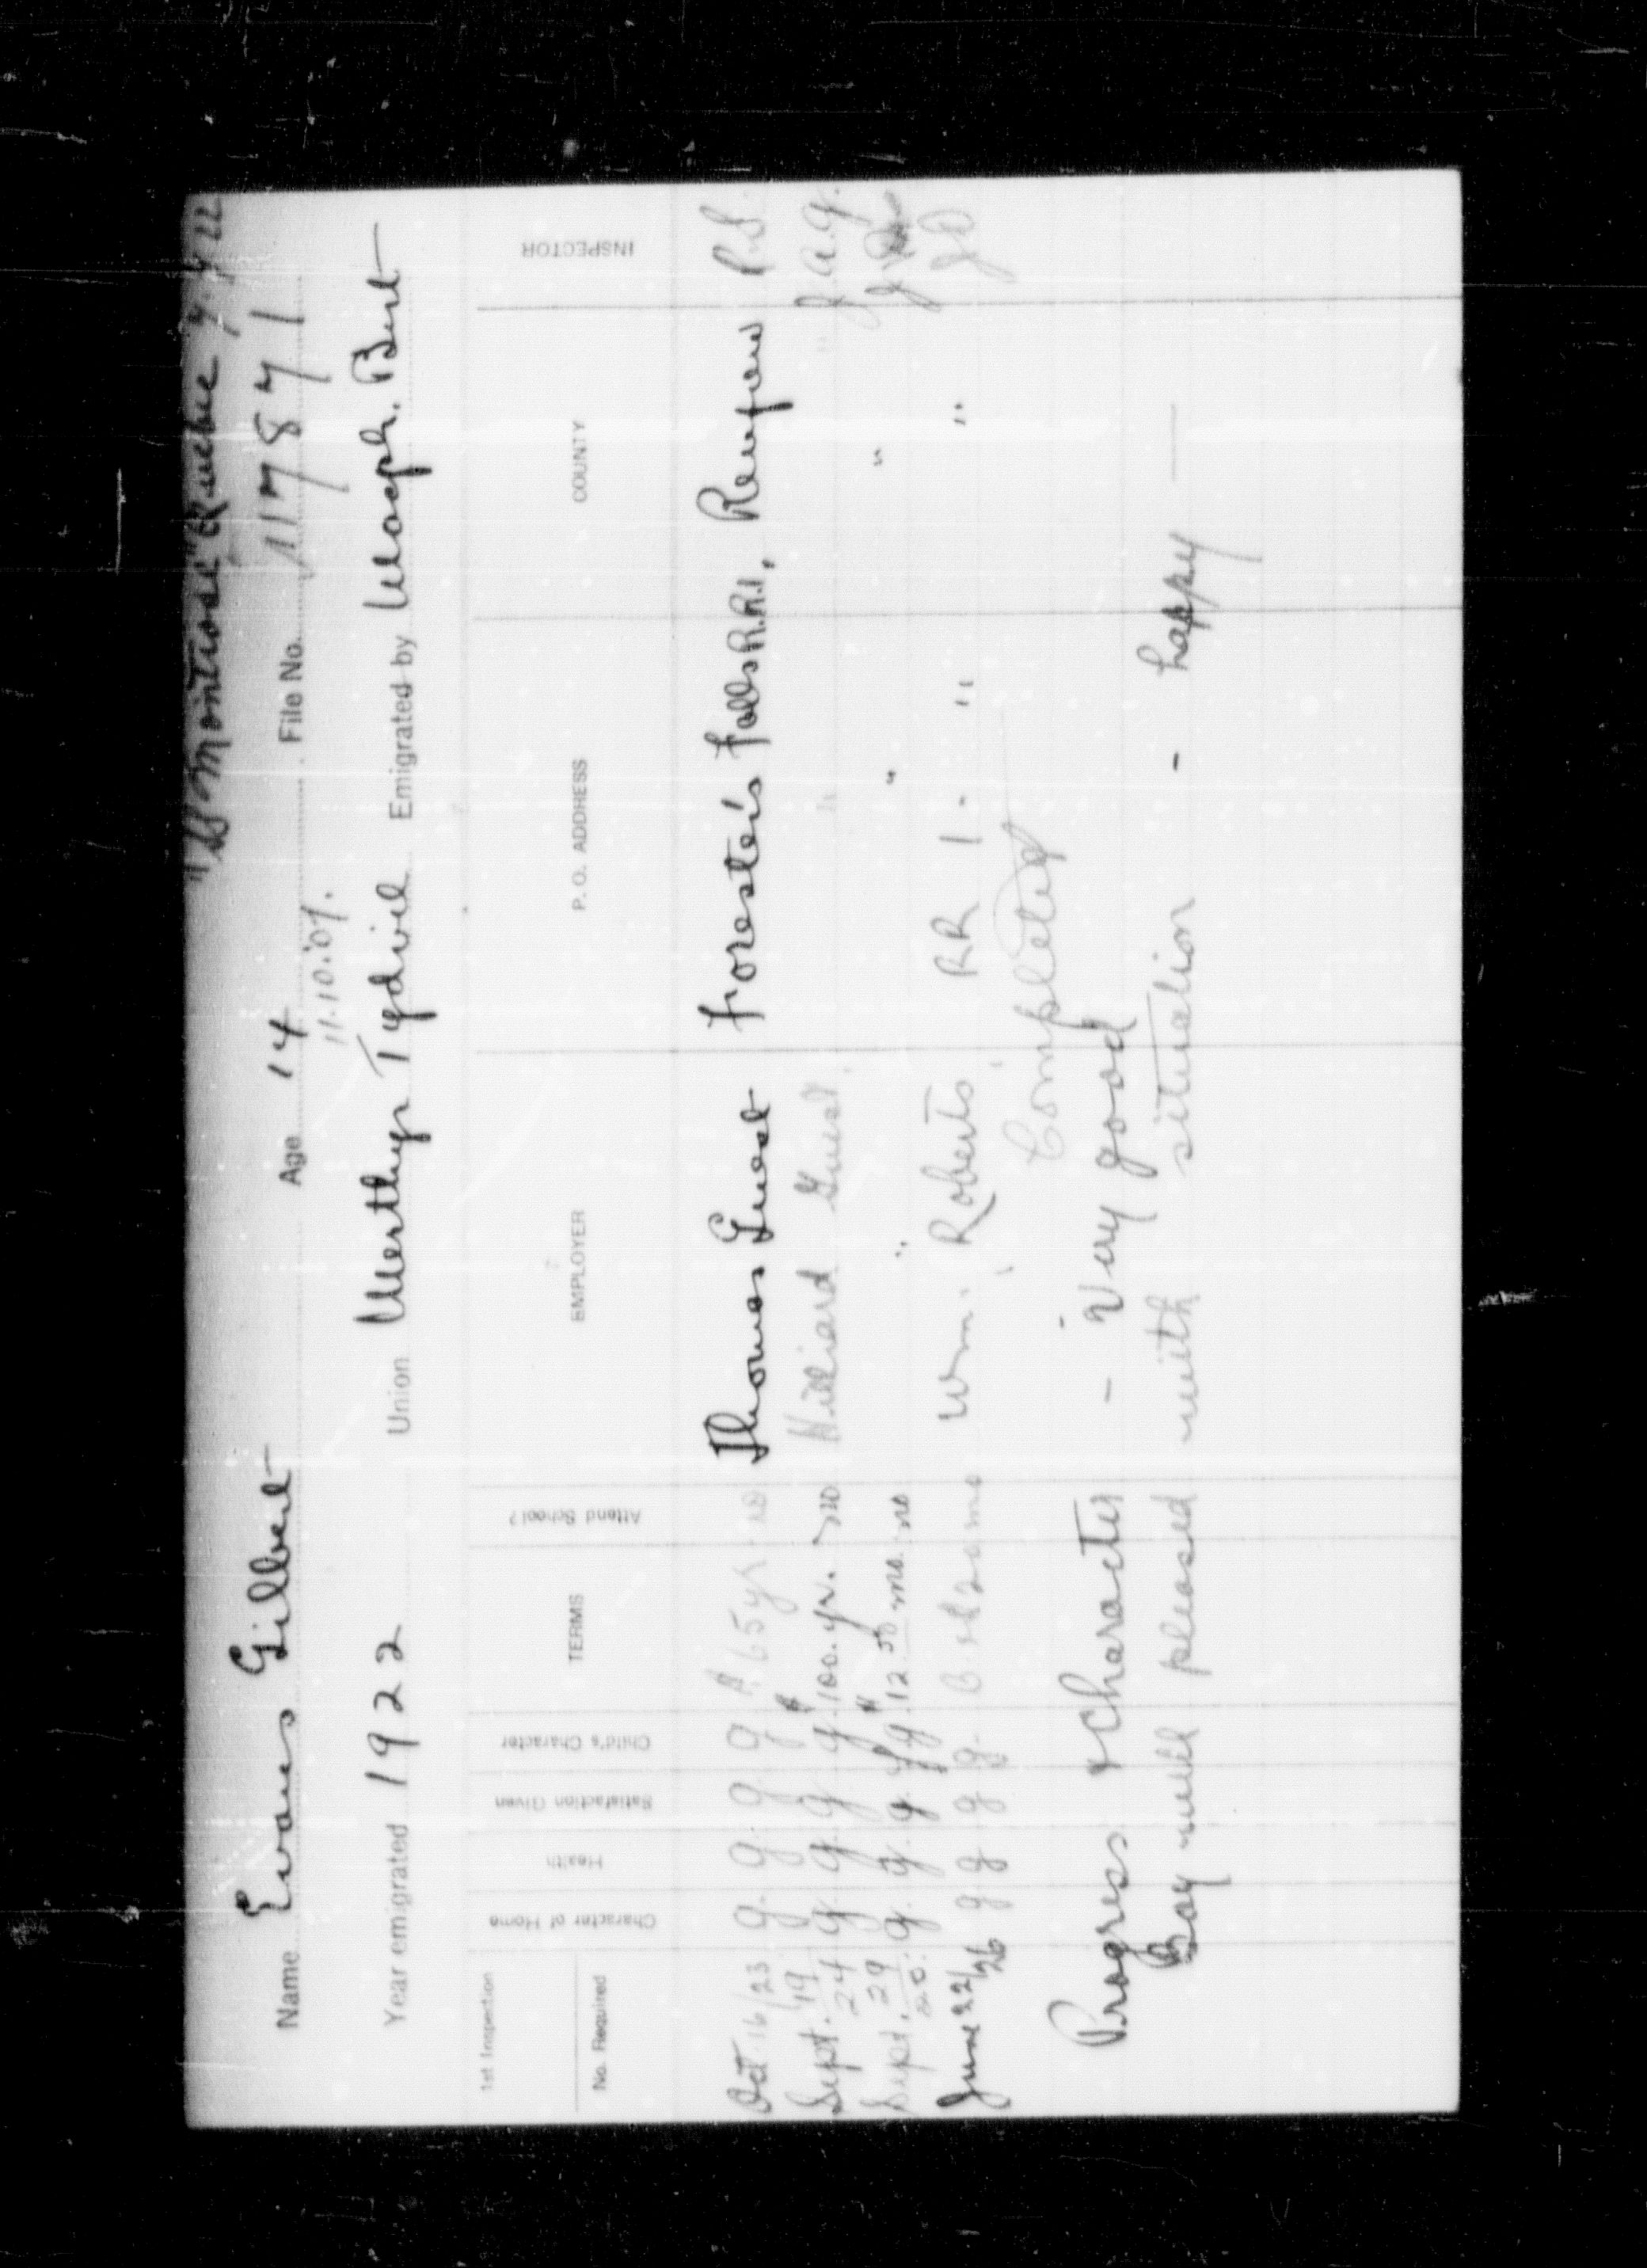 "SS Montrose" Quebec 7. 7 22
Name Evans Gilbert Age 14 File No. 117871
11.10.07.
Year emigrated 1922 Union Merthyr Tydvil Emigrated by Macph. Best
1st Inspection
No. Required Character of Home Health Satisfaction Given Child's Character TERMS Attend School? EMPLOYER P. O. ADDRESS COUNTY INSPECTOR
Oct 16/23 g. g. g g $65 yr no Thomas Guest Forester's Falls R.R.1, Renfrew
Sept. 19 24 g. g. g g. $100. yr. no Williard Guest " " J.A.G.
Sept. 29 g. g. g. fg. $12.50 mo. no " " "
June 22/26 g g g g. Wm. Roberts RR 1 - " "
Completed
Progress & Character - - Very good
Boy well pleased with situation - happy —